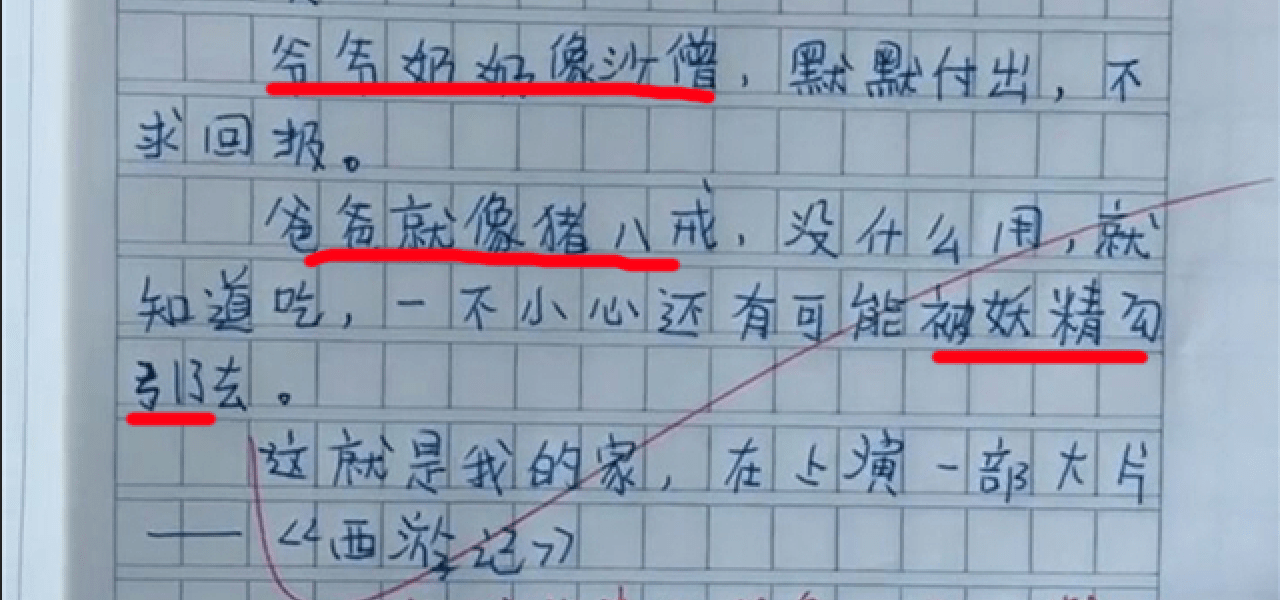 爷爷奶奶像沙僧，默默付出，不
求回报。
爸爸就像猪八戒，没什么用，就
知道吃，一不小心还有可能被妖精勾
引去。
这就是我的家，在上演一部大片
——《西游记》